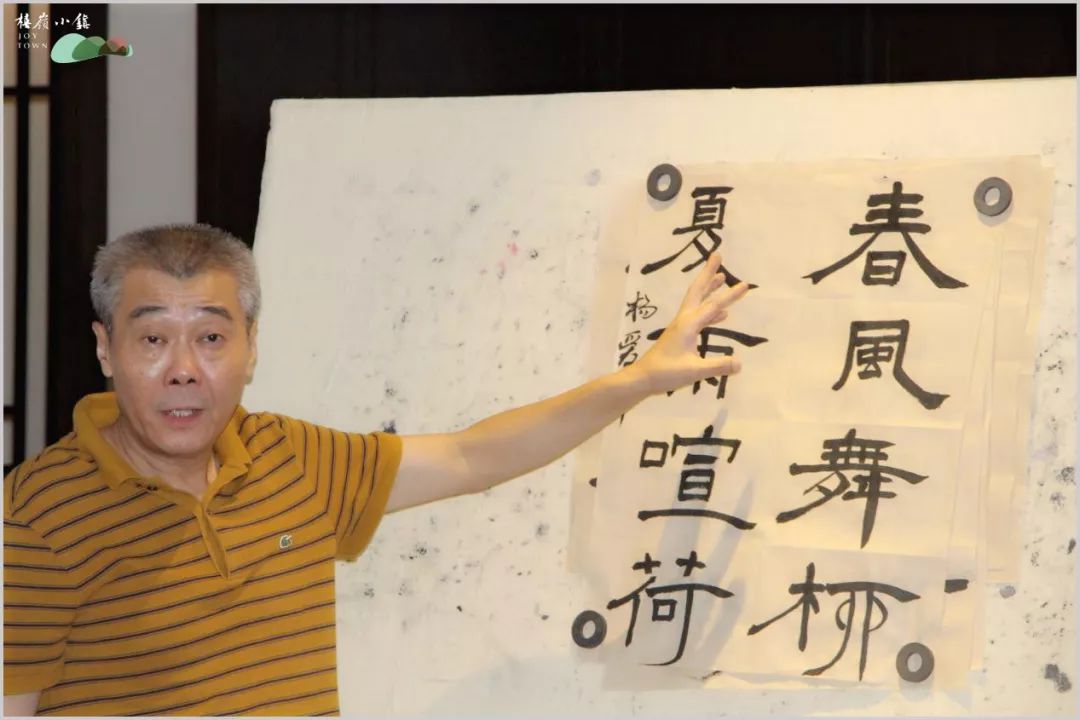 嶺小鎮
JOY
TOWN
春風舞柳
夏雨喧荷